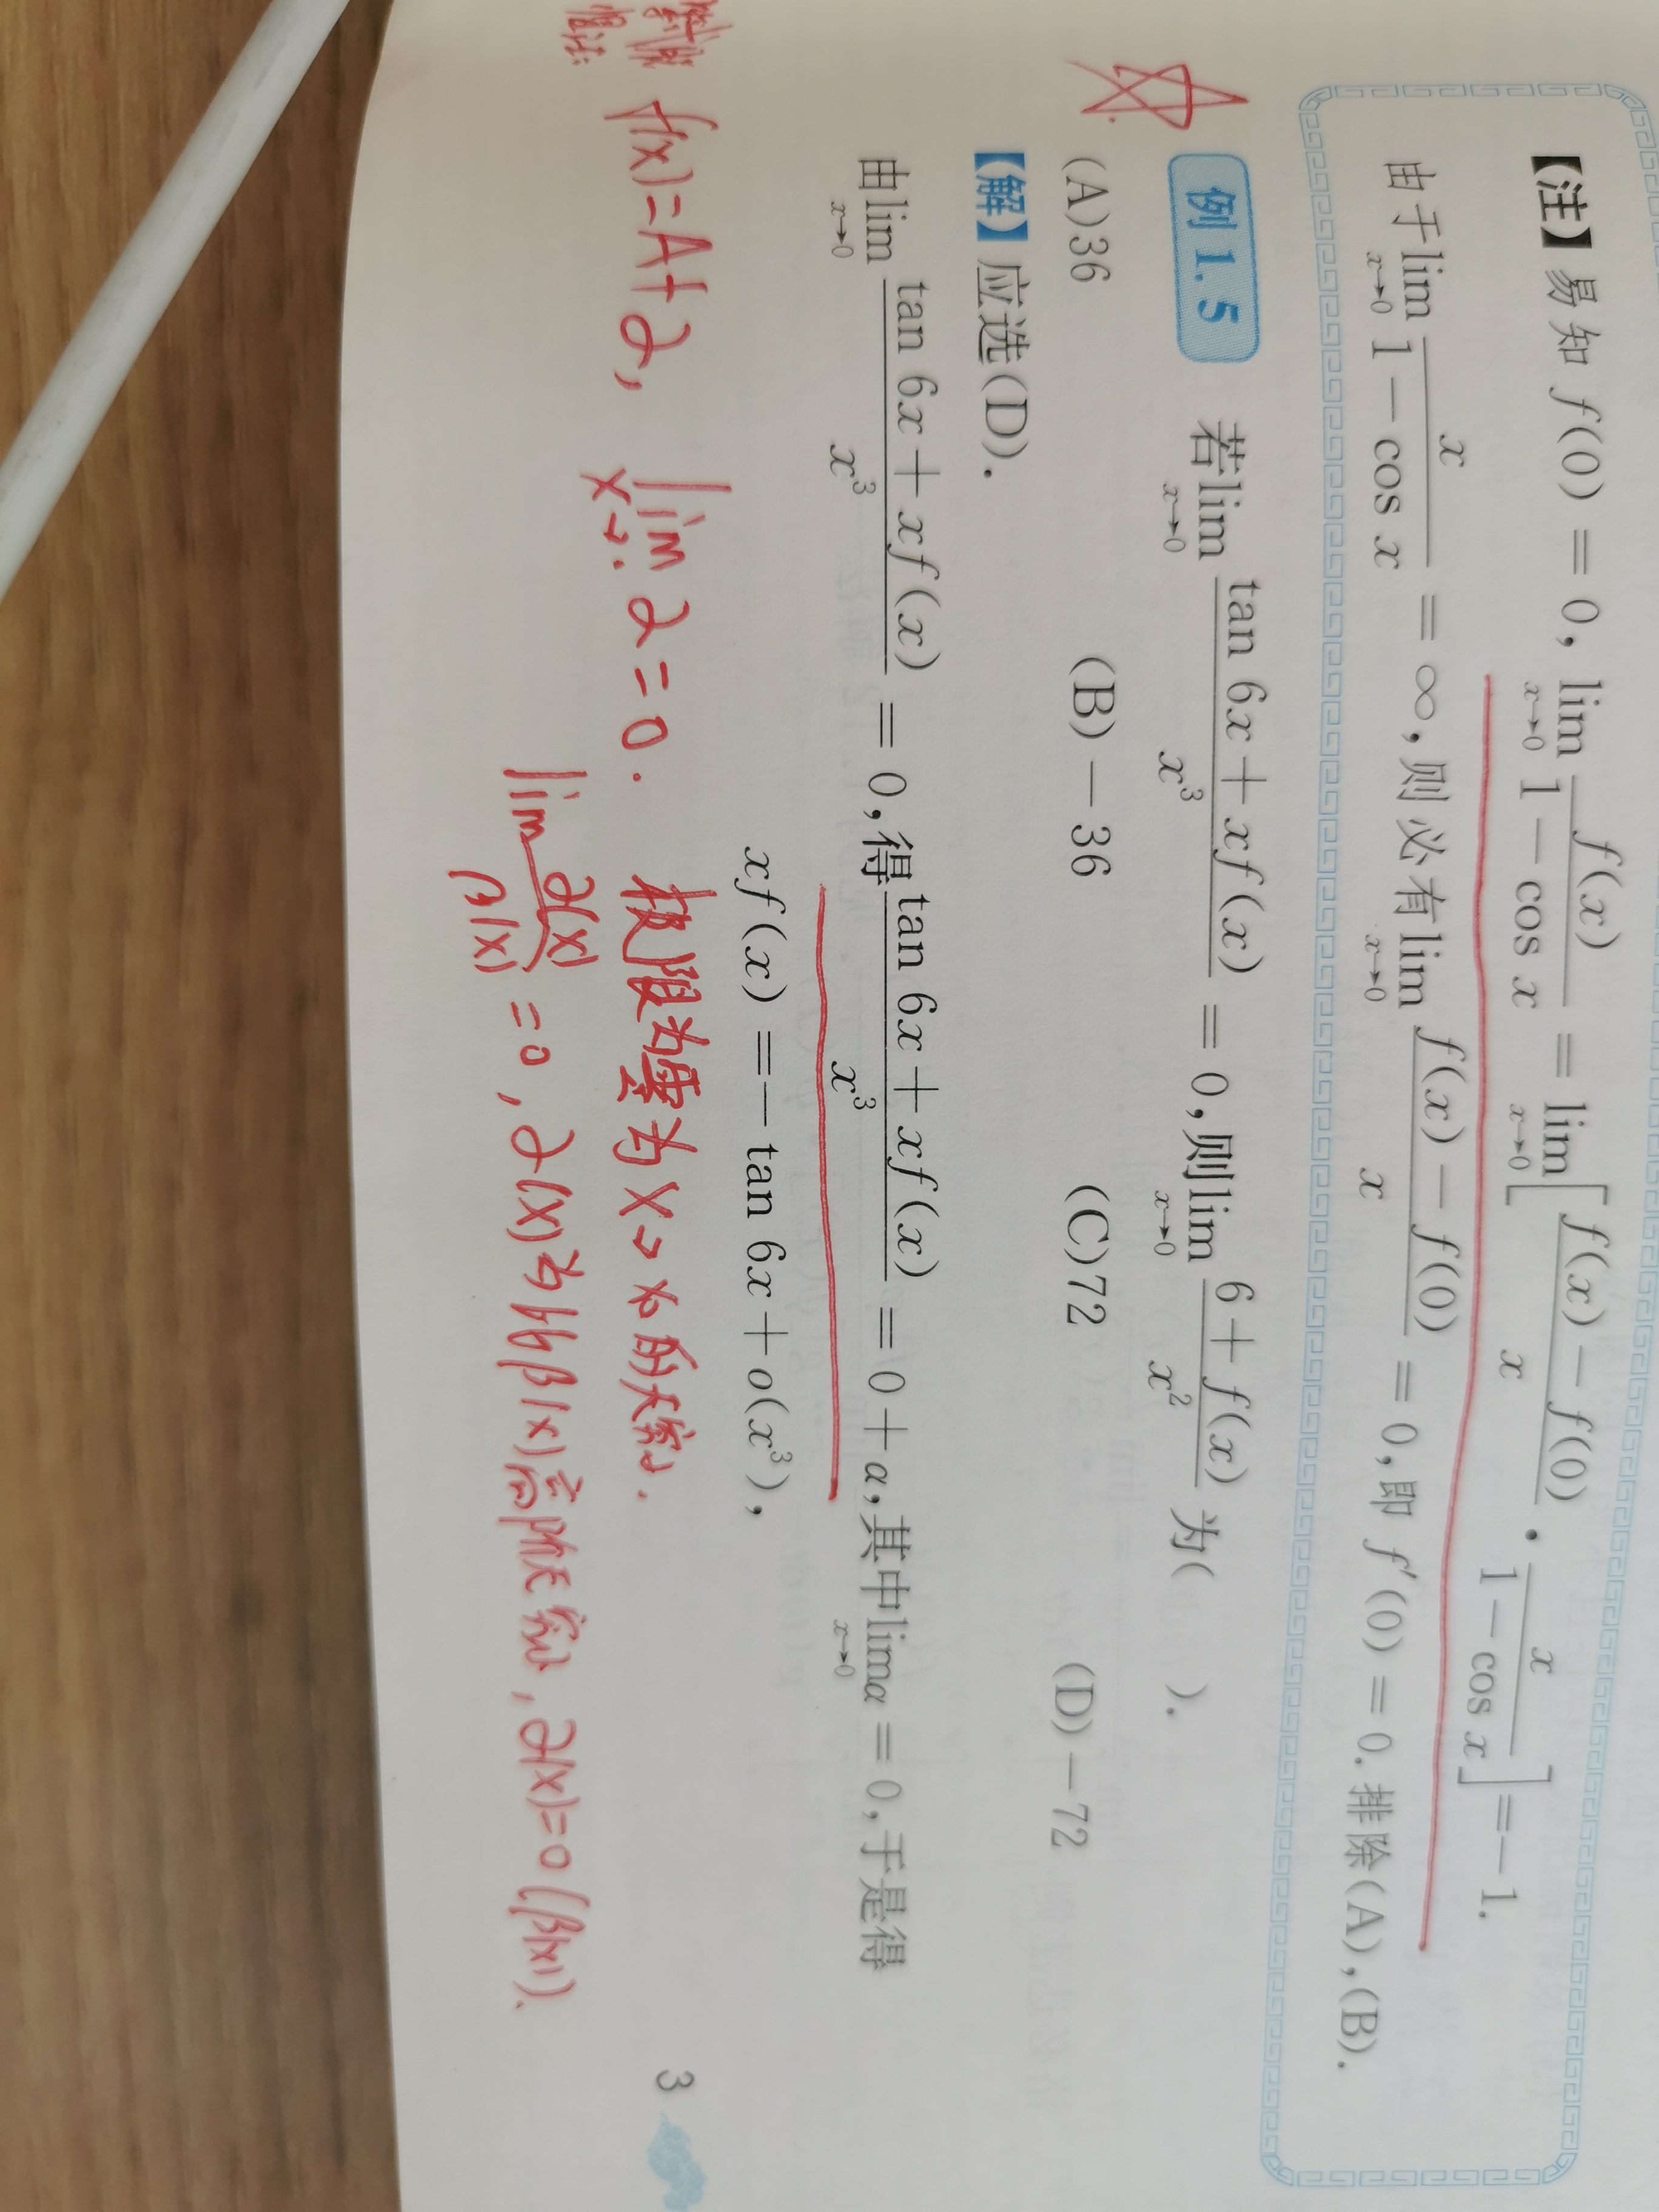 【注】易知 f(0) = 0, lim_{x→0} f(x)/(1-cos x) = lim_{x→0}[(f(x)-f(0))/x · x/(1-cos x)] = -1.
由于 lim_{x→0} x/(1-cos x) = ∞, 则必有 lim_{x→0} (f(x)-f(0))/x = 0, 即 f′(0) = 0. 排除(A),(B).
例 1.5 若 lim_{x→0} (tan 6x + xf(x))/x³ = 0, 则 lim_{x→0} (6+f(x))/x² 为( ).
(A)36 (B)-36 (C)72 (D)-72
【解】应选(D).
由 lim_{x→0} (tan 6x + xf(x))/x³ = 0, 得 (tan 6x + xf(x))/x³ = 0 + α, 其中 lim_{x→0} α = 0, 于是得
xf(x) = -tan 6x + o(x³),
f(x)=A+α, lim_{x→.} α=0. 极限为零为 x→x₀ 的无穷小.
lim α(x)/β(x) =0, α(x)为比β(x)高阶无穷小, α(x)=o(β(x)).
3